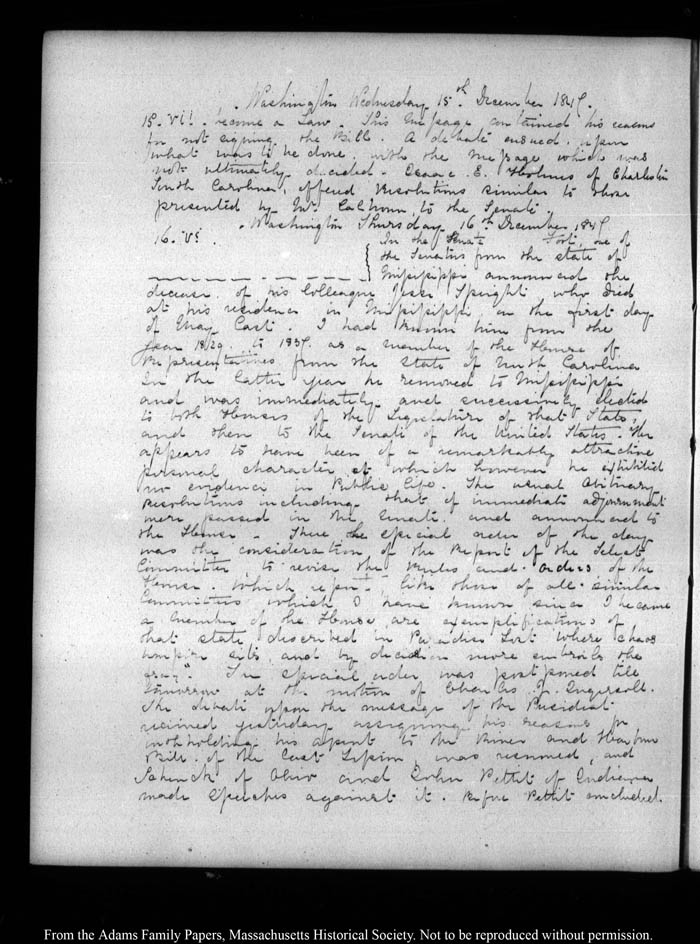 Washington Wednesday 15th December 1847.
15. VI. become a Law. This Message contained his reasons
for not signing the Bill. A debate ensued upon
what was to be done, with the message which was
not ultimately decided - Isaac E. Holmes of Charleston
South Carolina, offered Resolutions similar to those
presented by Mr. Calhoun, to the Senate.
Washington Thursday 16th December 1847
16. VI. In the Senate Foot, one of
the Senators from the state of
Missisippi announced the
decease of his Colleague Jesse Speight who died
at his residence in Missisippi on the first day
of May last. I had known him from the
year 1829 to 1837 as a member of the House of
Representatives from the State of North Carolina
In the latter year he removed to Missisippi
and was immediately and successively elected
to both Houses of the Legislature of that State,
and then to the Senate of the United States. He
appears to have been of a remarkably attractive
personal character of which however he exhibited
no evidence in Public life. The usual Obituary
Resolutions including that of immediate adjournment
were passed in the Senate and announced to
the House - There the special order of the day
was the consideration of the Report of the Select
Committee to revise the Rules and orders of the
House which report like those of all similar
Committees which I have known since I became
a member of the House are exemplifications of
that state described in Paradise Lost where chaos
umpire sits, and by decision more embroils the
fray". The special order was postponed till
tomorrow at the motion of Charles J. Ingersoll.
The debate upon the message of the President
received yesterday assigning his reasons for
withholding his assent to the River and Harbour
Bill of the last Session, was resumed, and
Schenck of Ohio and John Pettit of Indiana
made Speeches against it. Before Pettit concluded.
From the Adams Family Papers, Massachusetts Historical Society. Not to be reproduced without permission.